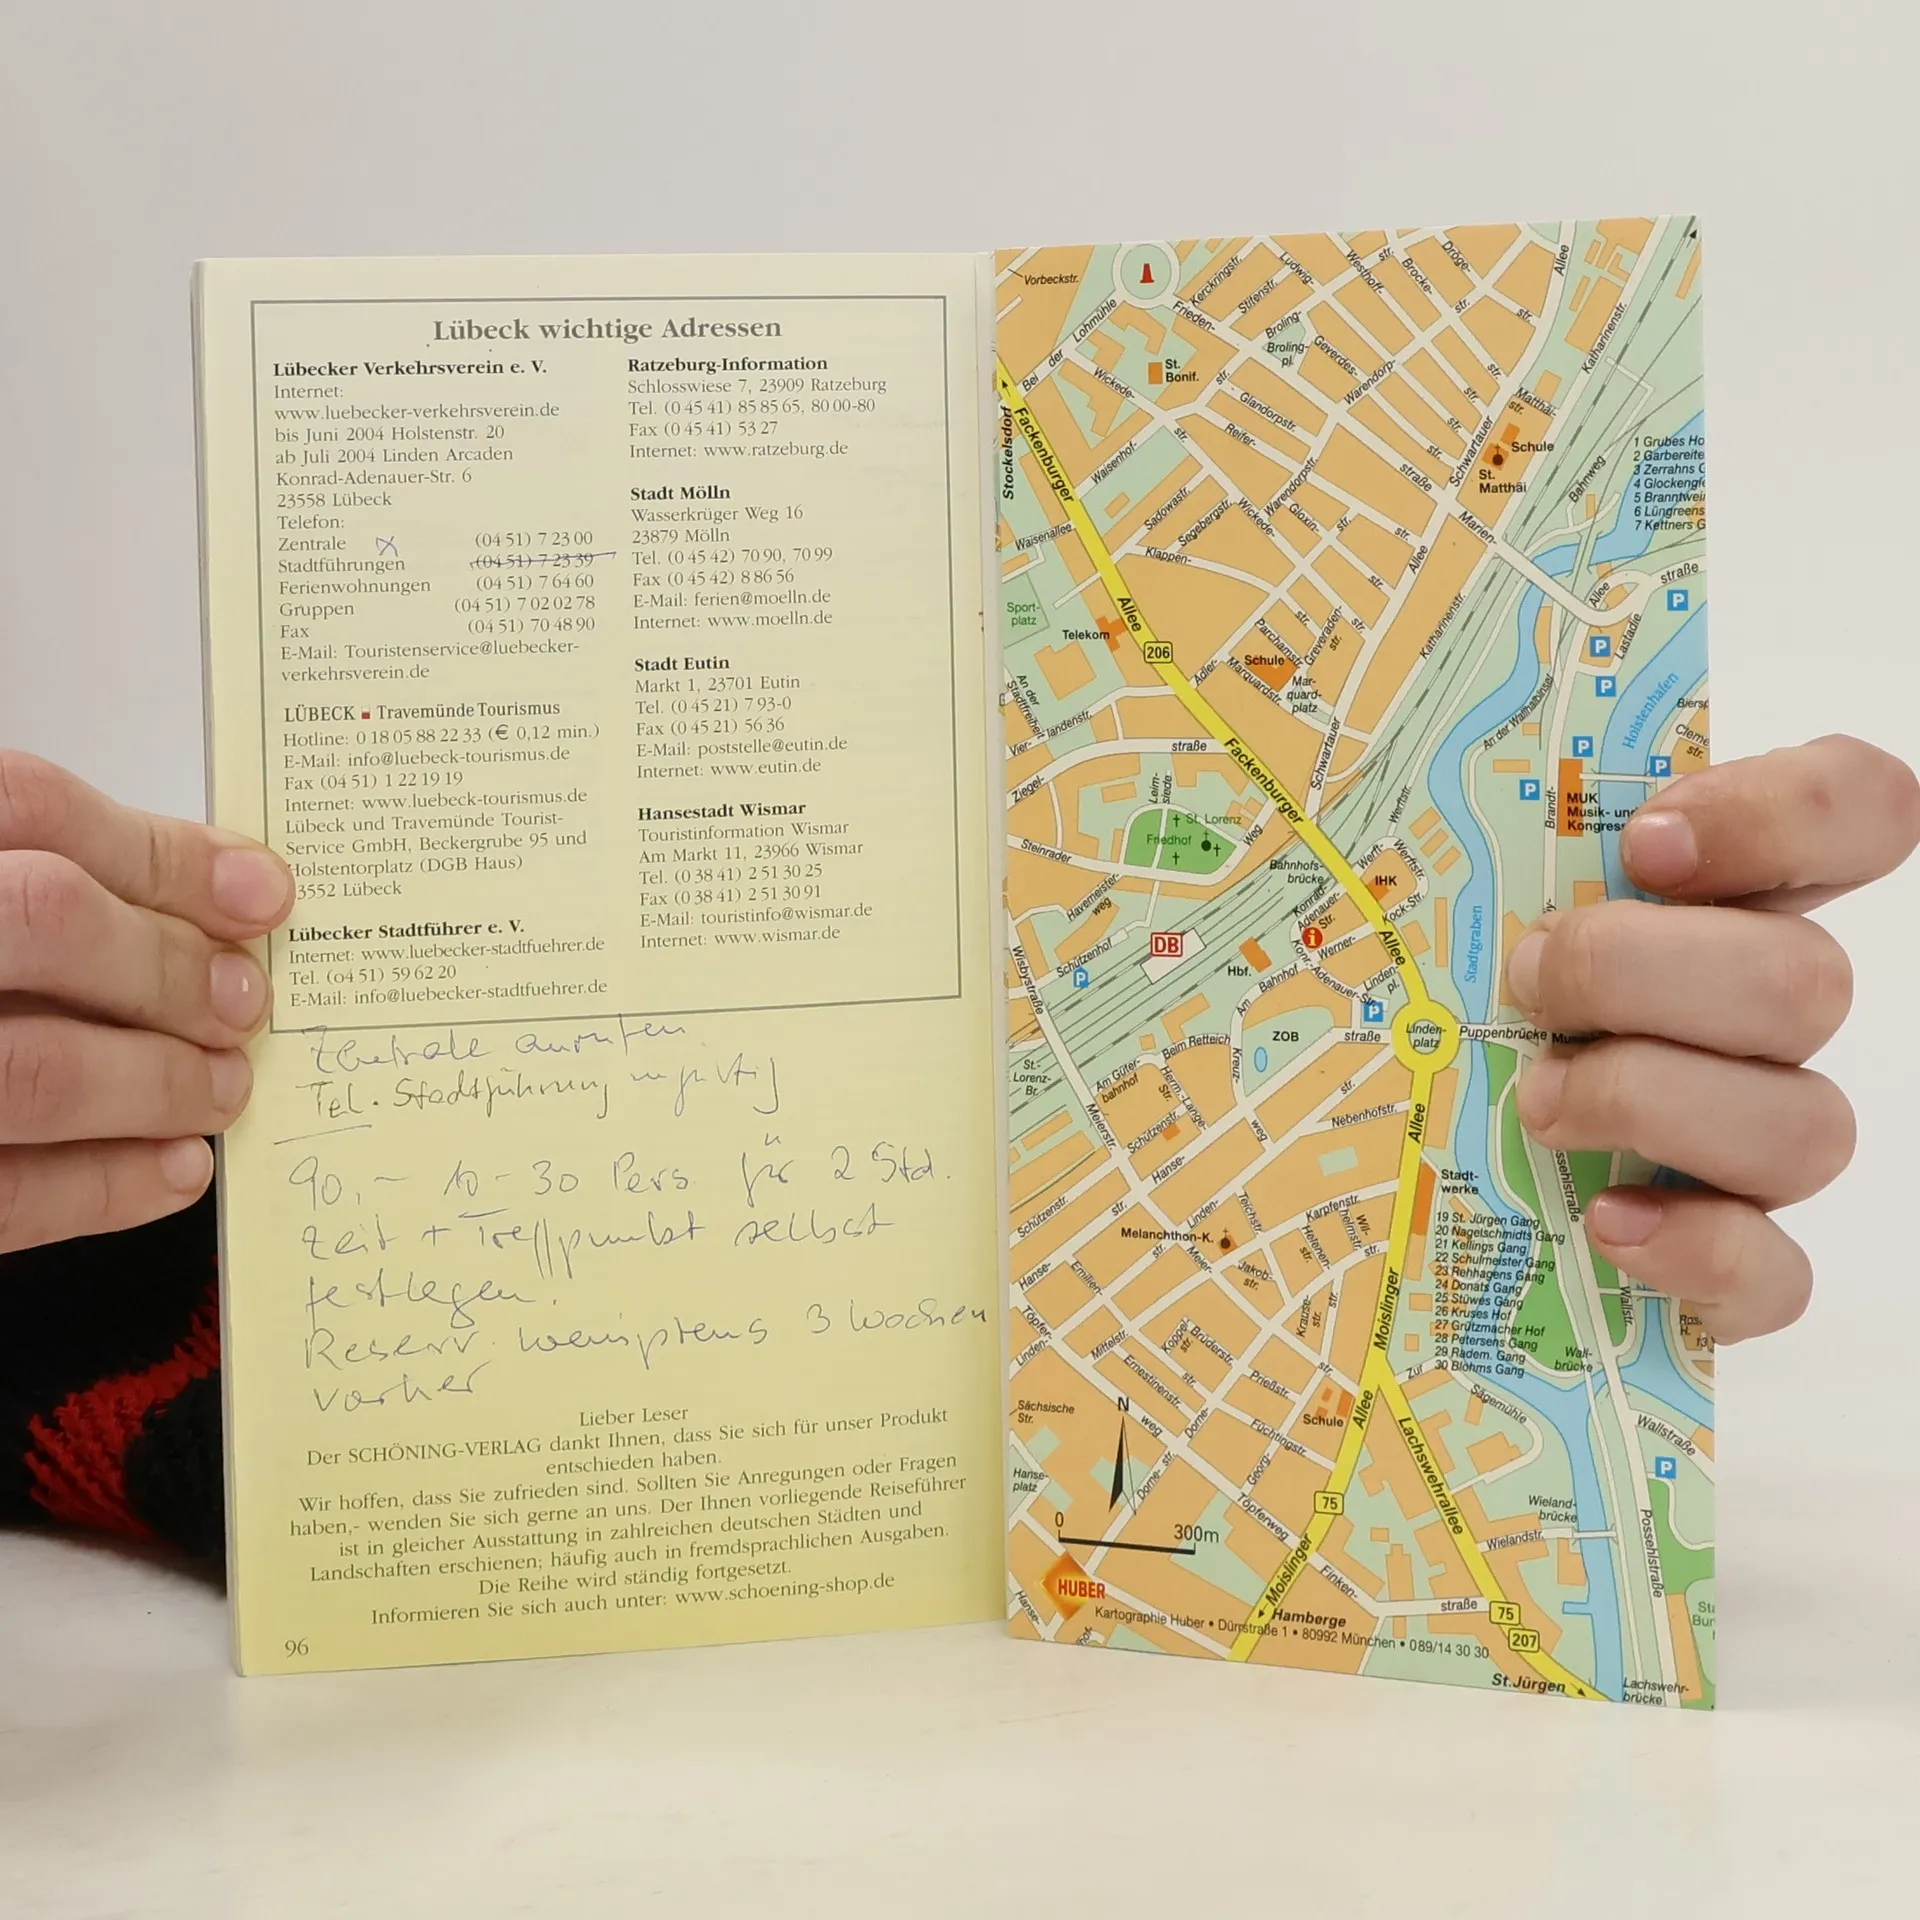 Lübeck wichtige Adressen
Lübecker Verkehrsverein e. V.
Internet:
www.luebecker-verkehrsverein.de
bis Juni 2004 Holstenstr. 20
ab Juli 2004 Linden Arcaden
Konrad-Adenauer-Str. 6
23558 Lübeck
Telefon:
Zentrale (04 51) 7 23 00
Stadtführungen (04 51) 7 23 39
Ferienwohnungen (04 51) 7 64 60
Gruppen (04 51) 7 02 02 78
Fax (04 51) 70 48 90
E-Mail: Touristenservice@luebecker-
verkehrsverein.de
LÜBECK Travemünde Tourismus
Hotline: 0 18 05 88 22 33 (€ 0,12 min.)
E-Mail: info@luebeck-tourismus.de
Fax (04 51) 1 22 19 19
Internet: www.luebeck-tourismus.de
Lübeck und Travemünde Tourist-
Service GmbH, Beckergrube 95 und
Holstentorplatz (DGB Haus)
3552 Lübeck
Lübecker Stadtführer e. V.
Internet: www.luebecker-stadtfuehrer.de
Tel. (04 51) 59 62 20
E-Mail: info@luebecker-stadtfuehrer.de
Ratzeburg-Information
Schlosswiese 7, 23909 Ratzeburg
Tel. (0 45 41) 85 85 65, 80 00-80
Fax (0 45 41) 53 27
Internet: www.ratzeburg.de
Stadt Mölln
Wasserkrüger Weg 16
23879 Mölln
Tel. (0 45 42) 70 90, 70 99
Fax (0 45 42) 8 86 56
E-Mail: ferien@moelln.de
Internet: www.moelln.de
Stadt Eutin
Markt 1, 23701 Eutin
Tel. (0 45 21) 7 93-0
Fax (0 45 21) 56 36
E-Mail: poststelle@eutin.de
Internet: www.eutin.de
Hansestadt Wismar
Touristinformation Wismar
Am Markt 11, 23966 Wismar
Tel. (0 38 41) 2 51 30 25
Fax (0 38 41) 2 51 30 91
E-Mail: touristinfo@wismar.de
Internet: www.wismar.de
Zentrale anrufen
Tel. Stadtführung ungültig
90,- 10-30 Pers für 2 Std.
Zeit + Treffpunkt selbst
festlegen.
Reserv. wenigstens 3 Wochen
vorher
Lieber Leser
Der SCHÖNING-VERLAG dankt Ihnen, dass Sie sich für unser Produkt
entschieden haben.
Wir hoffen, dass Sie zufrieden sind. Sollten Sie Anregungen oder Fragen
haben,- wenden Sie sich gerne an uns. Der Ihnen vorliegende Reiseführer
ist in gleicher Ausstattung in zahlreichen deutschen Städten und
Landschaften erschienen; häufig auch in fremdsprachlichen Ausgaben.
Die Reihe wird ständig fortgesetzt.
Informieren Sie sich auch unter: www.schoening-shop.de
96
Vorbeckstr.
Kerckringstr.
Ludwig-
Westhoff-
str.
Brocke-
Dröge-
str.
Allee
Bei der Lohmühle
Frieden-
Stiftenstr.
Broling-
str.
Broling-
pl.
Geverdes-
str.
Katharinenstr.
St.
Bonif.
Wickede-
str.
Glandorpstr.
Warendorp-
str.
Matthäi-
str.
Stockelsdorf
Fackenburger
Reifer-
str.
Waisenhof-
straße
Schwartauer
Schule
St.
Matthäi
Bahnweg
1 Grubes Ho
2 Garbereite
3 Zerrahns G
4 Glockengie
5 Branntwei
6 Lüngreens
7 Kettners G
Waisenallee
Sadowastr.
Segebergstr.
Wickede-
Warendorpstr.
Gloxin-
str.
Marien-
Klappen-
Allee
straße
Sport-
platz
Telekom
Allee
206
Parchamstr.
Greveraden-
str.
Katharinenstr.
Allee
Lastadie
P
P
P
Schule
Adler-
Marquardstr.
Mar-
quard-
platz
An der
Stadtfreiheit
Vier-
landenstr.
straße
Fackenburger
Schwartauer
An der Wallhalbinsel
Holstenhafen
Biersp
Cleme
str.
P
P
P
Ziegel-
Leim-
siede
St. Lorenz
Friedhof
Weg
Werftstr.
Brandt-
MUK
Musik- und
Kongress
Steinrader
Bahnhofs-
brücke
Werft-
Werftstr.
IHK
Havemeister-
weg
Konrad-
Adenauer-
Str.
Kock-Str.
Werner-
Allee
Stadtgraben
Wisbystraße
Schützenhof
P
DB
Hbf.
Am Bahnhof
Konr.-Adenauer-Str.
Linden-
pl.
P
ZOB
straße
Linden-
platz
Puppenbrücke
St.-
Lorenz-
Br.
Am Güter-
bahnhof
Beim Retteich
Herm.-Lange-
Str.
Kreuz-
weg
Meierstr.
Schützenstr.
Nebenhofstr.
Allee
Hanse-
str.
Stadt-
werke
Schützenstr.
str.
Linden-
Teichstr.
Karpfenstr.
Wil-
helmstr.
Melanchthon-K.
str.
Meier-
Helenen-
str.
str.
Jakob-
str.
19 St. Jürgen Gang
20 Nagelschmidts Gang
21 Kellings Gang
22 Schulmeister Gang
23 Rehhagens Gang
24 Donats Gang
25 Stüwes Gang
26 Kruses Hof
27 Grützmacher Hof
28 Petersens Gang
29 Radem. Gang
30 Blohms Gang
Hanse-
Emilien-
Töpfer-
Linden-
Mittelstr.
Koppel-
str.
Brüderstr.
Krause-
str.
str.
Moislinger
Ernestinenstr.
str.
Prießstr.
str.
Zur
Sägemühle
Wall-
brücke
Wallstr.
Ros.
H.
13
Sächsische
Str.
N
weg
Dorne-
Füchtingstr.
Schule
Allee
Wallstraße
Hanse-
platz
Dorne-
str.
Georg-
Lachswehrallee
P
0
300m
Töpferweg
75
Wieland-
brücke
Wielandstr.
Possehlstraße
HUBER
Hanse-
Moislinger
Finken-
straße
75
207
Hamberge
Kartographie Huber • Dürrstraße 1 • 80992 München • 089/14 30 30
St.Jürgen
Lachswehr-
brücke